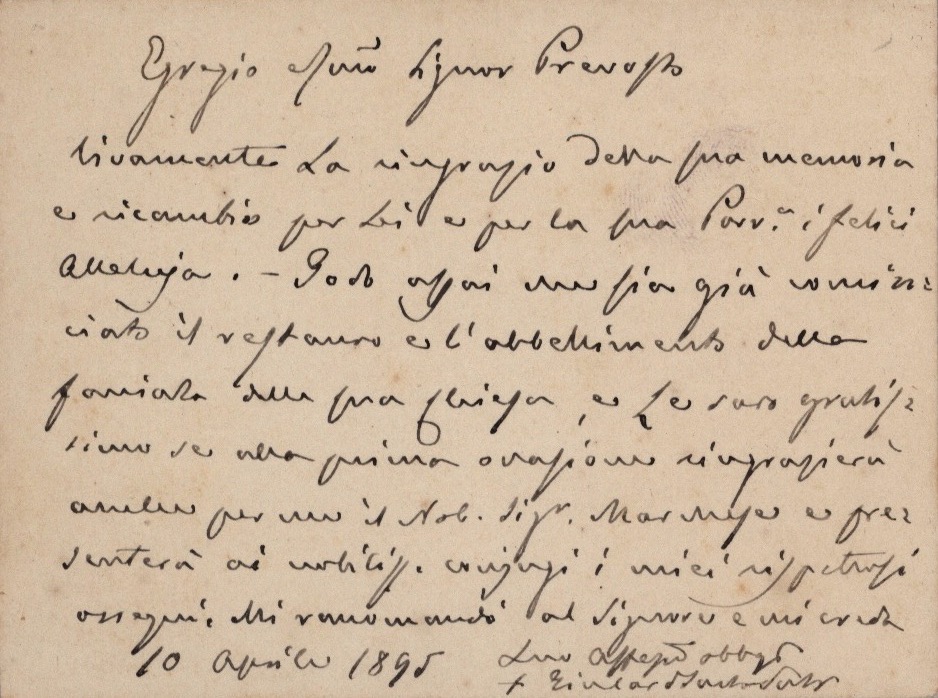 Egregio e Rmo Signor Prevosto
Vivamente La ringrazio della sua memoria
e ricambio per Lei e per la sua Parr.a i felici
Alleluja. - Godo assai che sia già comin=
ciato il restauro e l'abbellimento della
facciata della sua Chiesa, e Le sarò gratis=
simo se alla prima occasione ringrazierà
anche per me il Nob. Sigr. Marchese e pre=
senterà ai nobiliss. conjugi i miei rispettosi
ossequi. Mi raccomandi al Signore e mi creda
10 Aprile 1895 Suo Affezmo obbgo
+